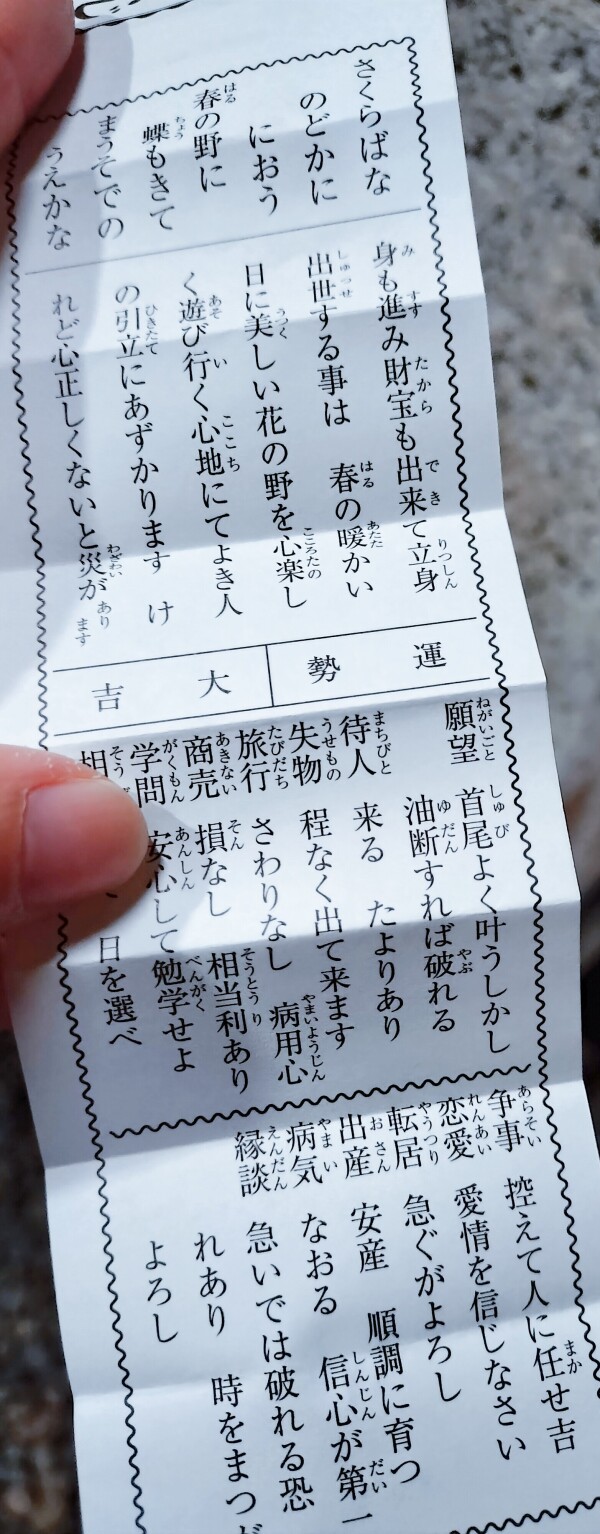 さくらばな
のどかに
におう
春の野に
蝶もきて
まうそでの
うえかな
身も進み財宝も出来て立身
出世する事は 春の暖かい
日に美しい花の野を心楽し
く遊び行く心地にてよき人
の引立にあずかります け
れど心正しくないと災があります
運勢 大吉
願望 首尾よく叶うしかし
油断すれば破れる
待人 来る たよりあり
失物 程なく出て来ます
旅行 さわりなし 病用心
商売 損なし 相当利あり
学問 安心して勉学せよ
相 日を選べ
争事 控えて人に任せ吉
恋愛 愛情を信じなさい
転居 急ぐがよろし
出産 安産 順調に育つ
病気 なおる 信心が第一
縁談 急いでは破れる恐
れあり 時をまつ
よろし